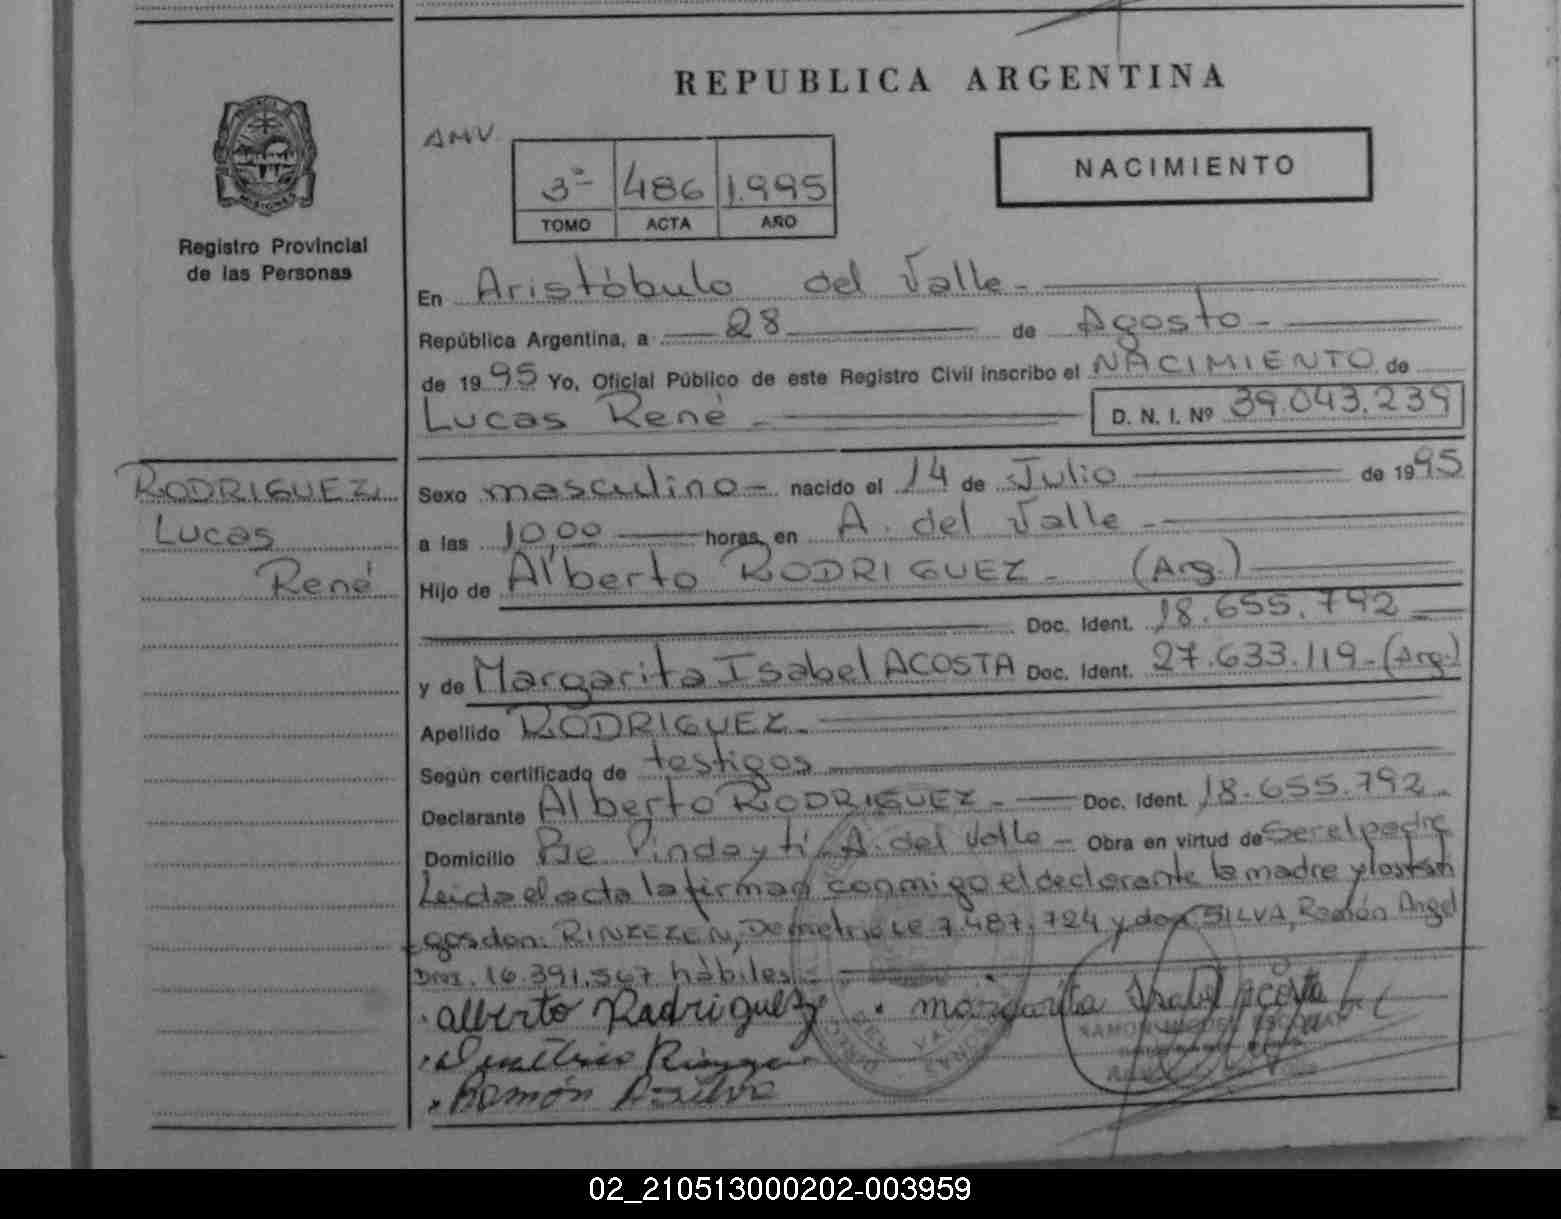 REPUBLICA ARGENTINA
AMV
3º 486 1.995
TOMO ACTA AÑO
NACIMIENTO
MISIONES
Registro Provincial
de las Personas
En Aristóbulo del Valle
República Argentina, a 28 de Agosto
de 1995 Yo, Oficial Público de este Registro Civil inscribo el NACIMIENTO de
Lucas René D. N. I. Nº 39.043.239
RODRIGUEZ
Lucas
René
Sexo masculino nacido el 14 de Julio de 1995
a las 10,00 horas, en A. del Valle
Hijo de Alberto RODRIGUEZ (Arg.)
Doc. Ident. 18.655.792
y de Margarita Isabel ACOSTA Doc. Ident. 27.633.119 (Arg.)
Apellido RODRIGUEZ
Según certificado de testigos
Declarante Alberto RODRIGUEZ Doc. Ident. 18.655.792
Domicilio Pje Pindayti A. del Valle Obra en virtud de ser el padre
Leida el acta la firman conmigo el declarante la madre y los testi
gos don: Demetrio LE 7.487.724 y don SILVA, Ramón Angel
16.391.567 hábiles
Alberto Radriguez Margarita Isabel Acosta
Demetrio
Ramón A Silva
02_210513000202-003959